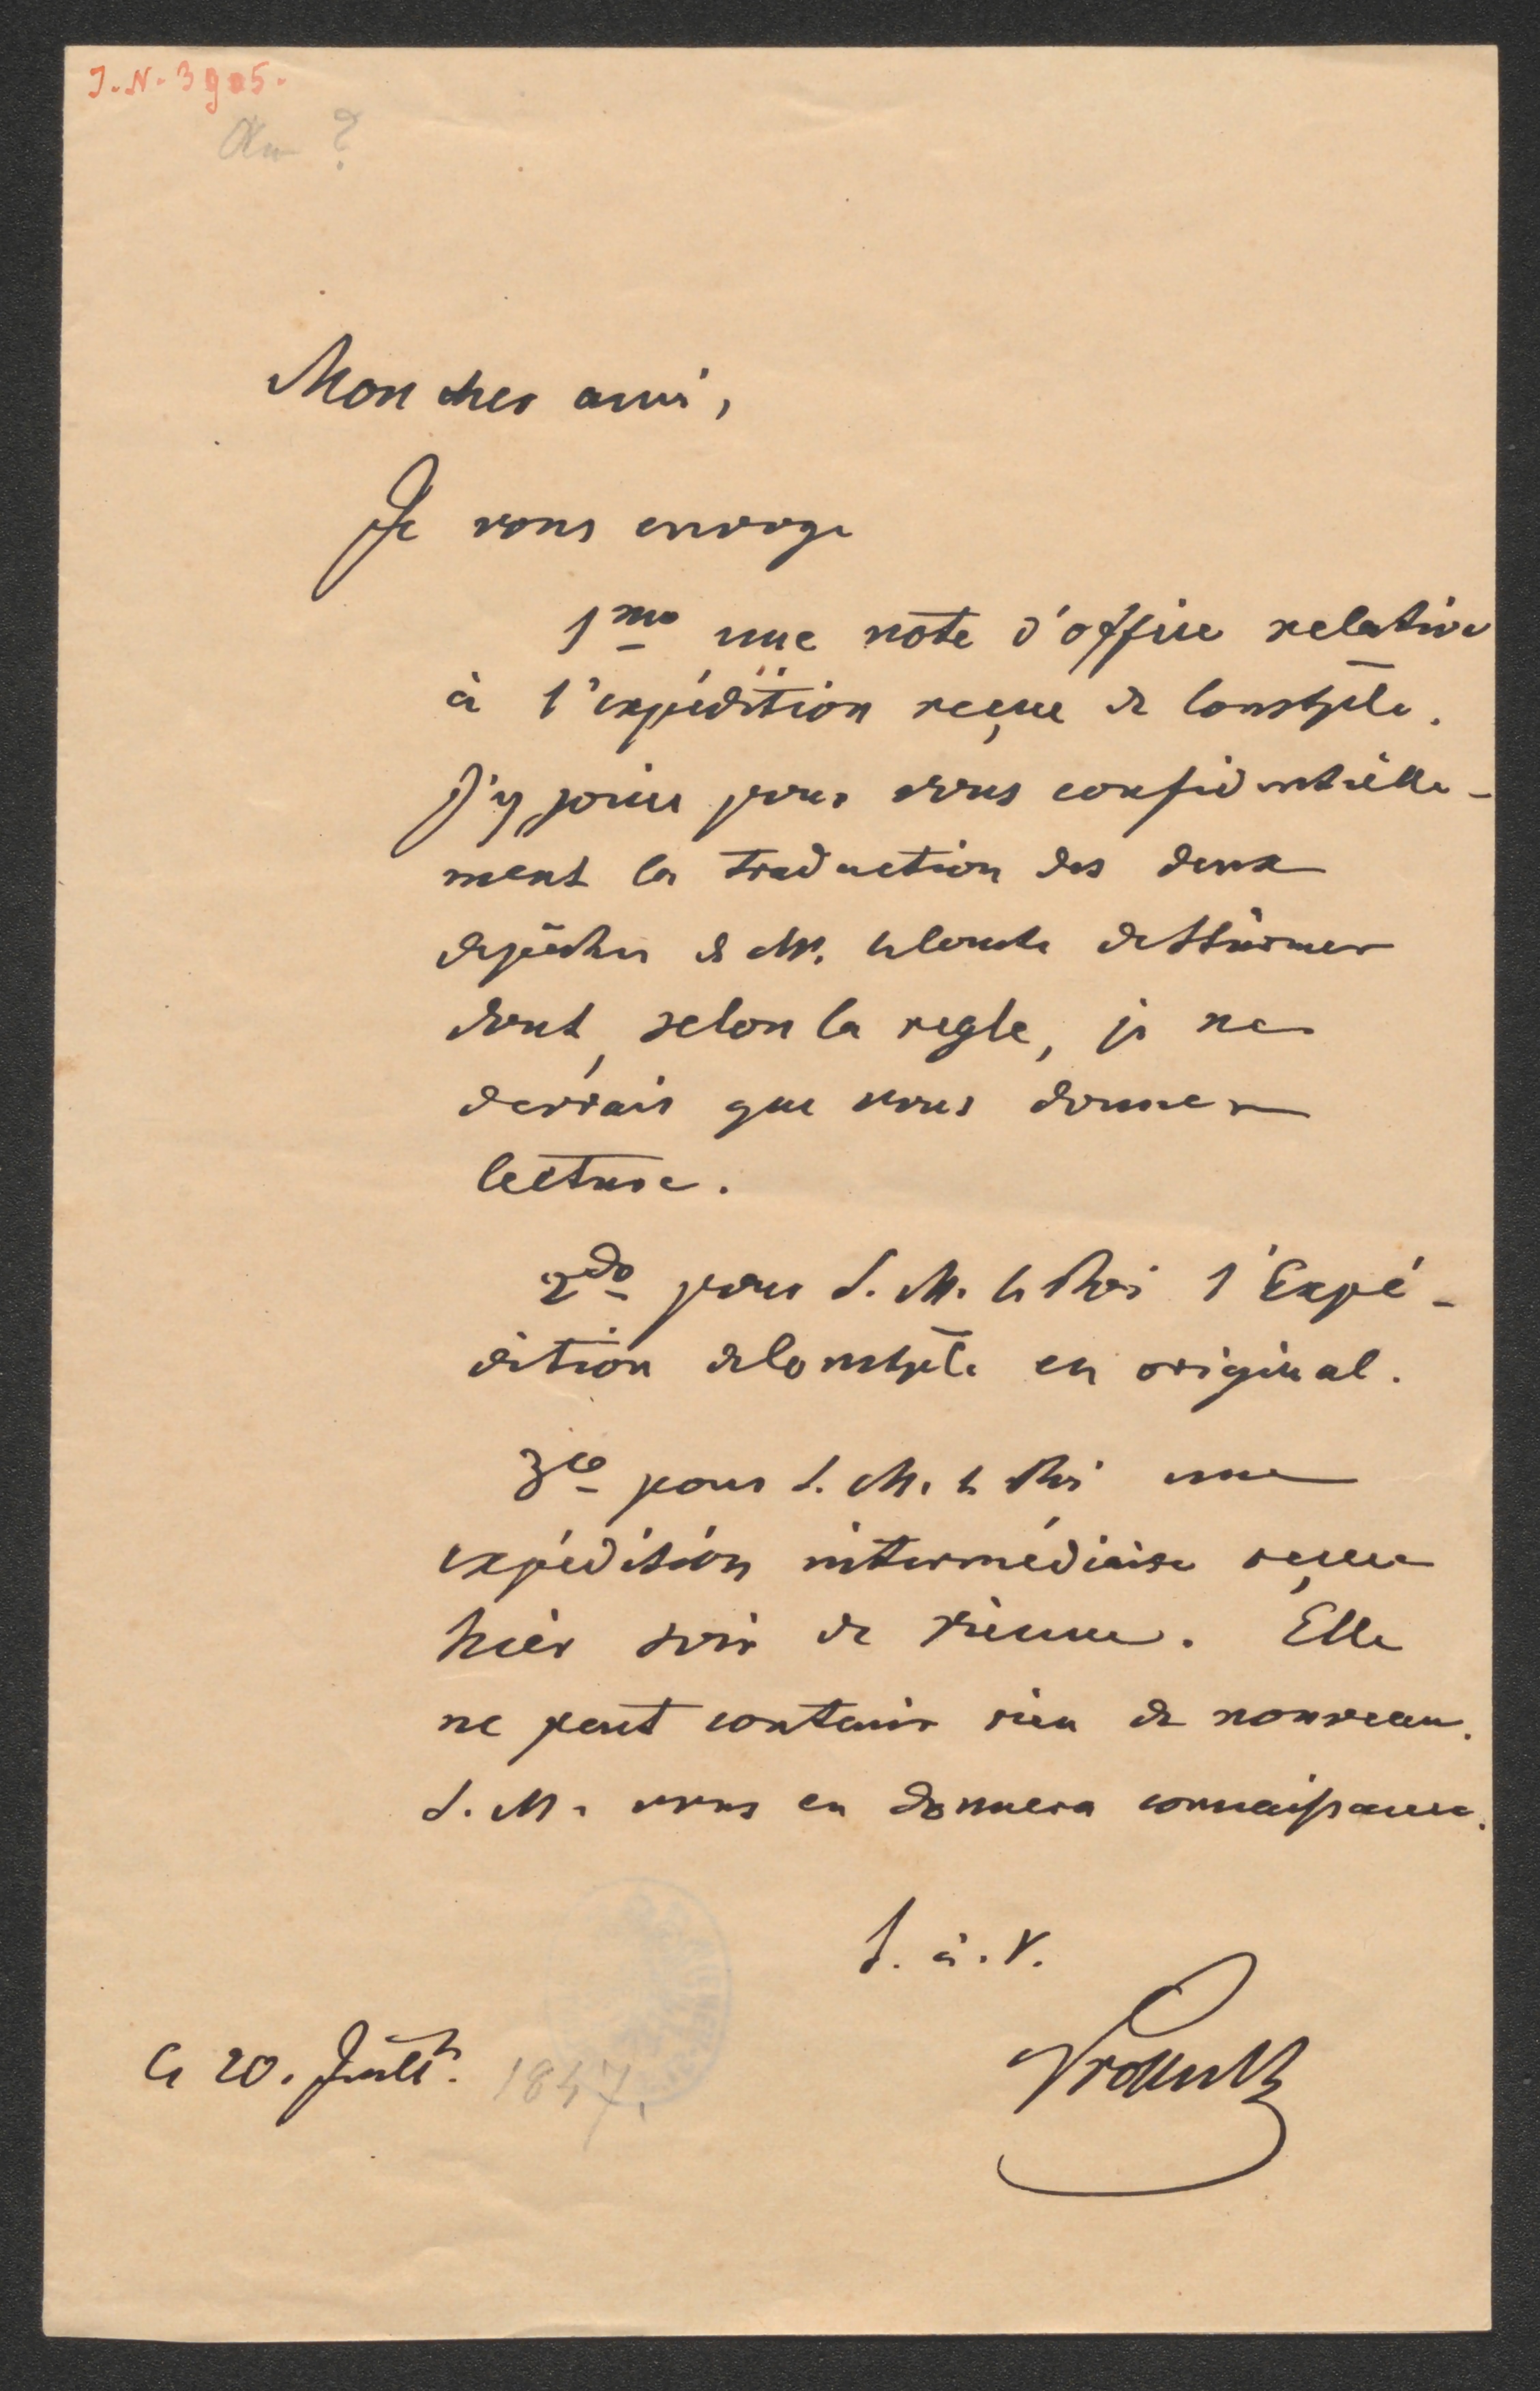 J.-N.-3905.
?
Mon cher ami,
Je vous envoye
1mo une note d'office relative
à l'expédition reçue de Constple.
J'y joins pour vous confidentielle-
ment la traduction des deux
depêches de Mr. le Comte de Stürmer
dont, selon la regle, je ne
devrais que vous donner
lecture.
2do pour S. M. le Roi l'Expé-
dition de Constple en original.
3io pour S. M. le Roi une
expédition intermédiaire reçue
hier soir de Vienne. Elle
ne peut contenir rien de nouveau.
S. M. vous en donnera connaissance.
t. à. v.
Prokesch
le 20. Juillt. 1847.